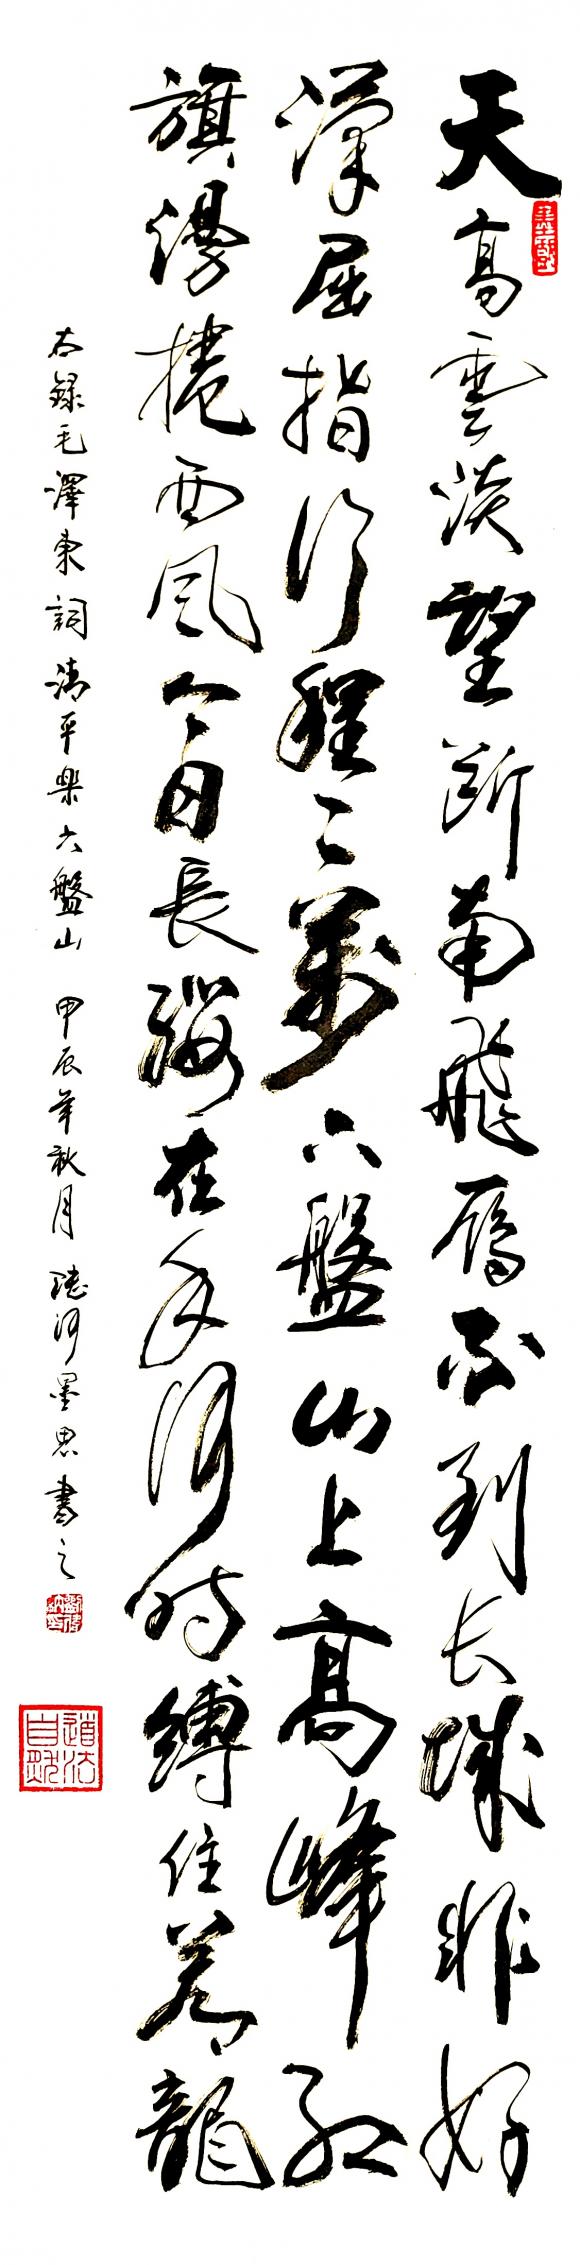 天高雲淡望断南飛雁不到长城非好
漢屈指行程二萬六盤山上高峰红
旗漫捲西風今日長纓在手何时縛住蒼龍
右録毛澤東詞清平樂六盤山 甲辰年秋月 河墨思書之
道法自然